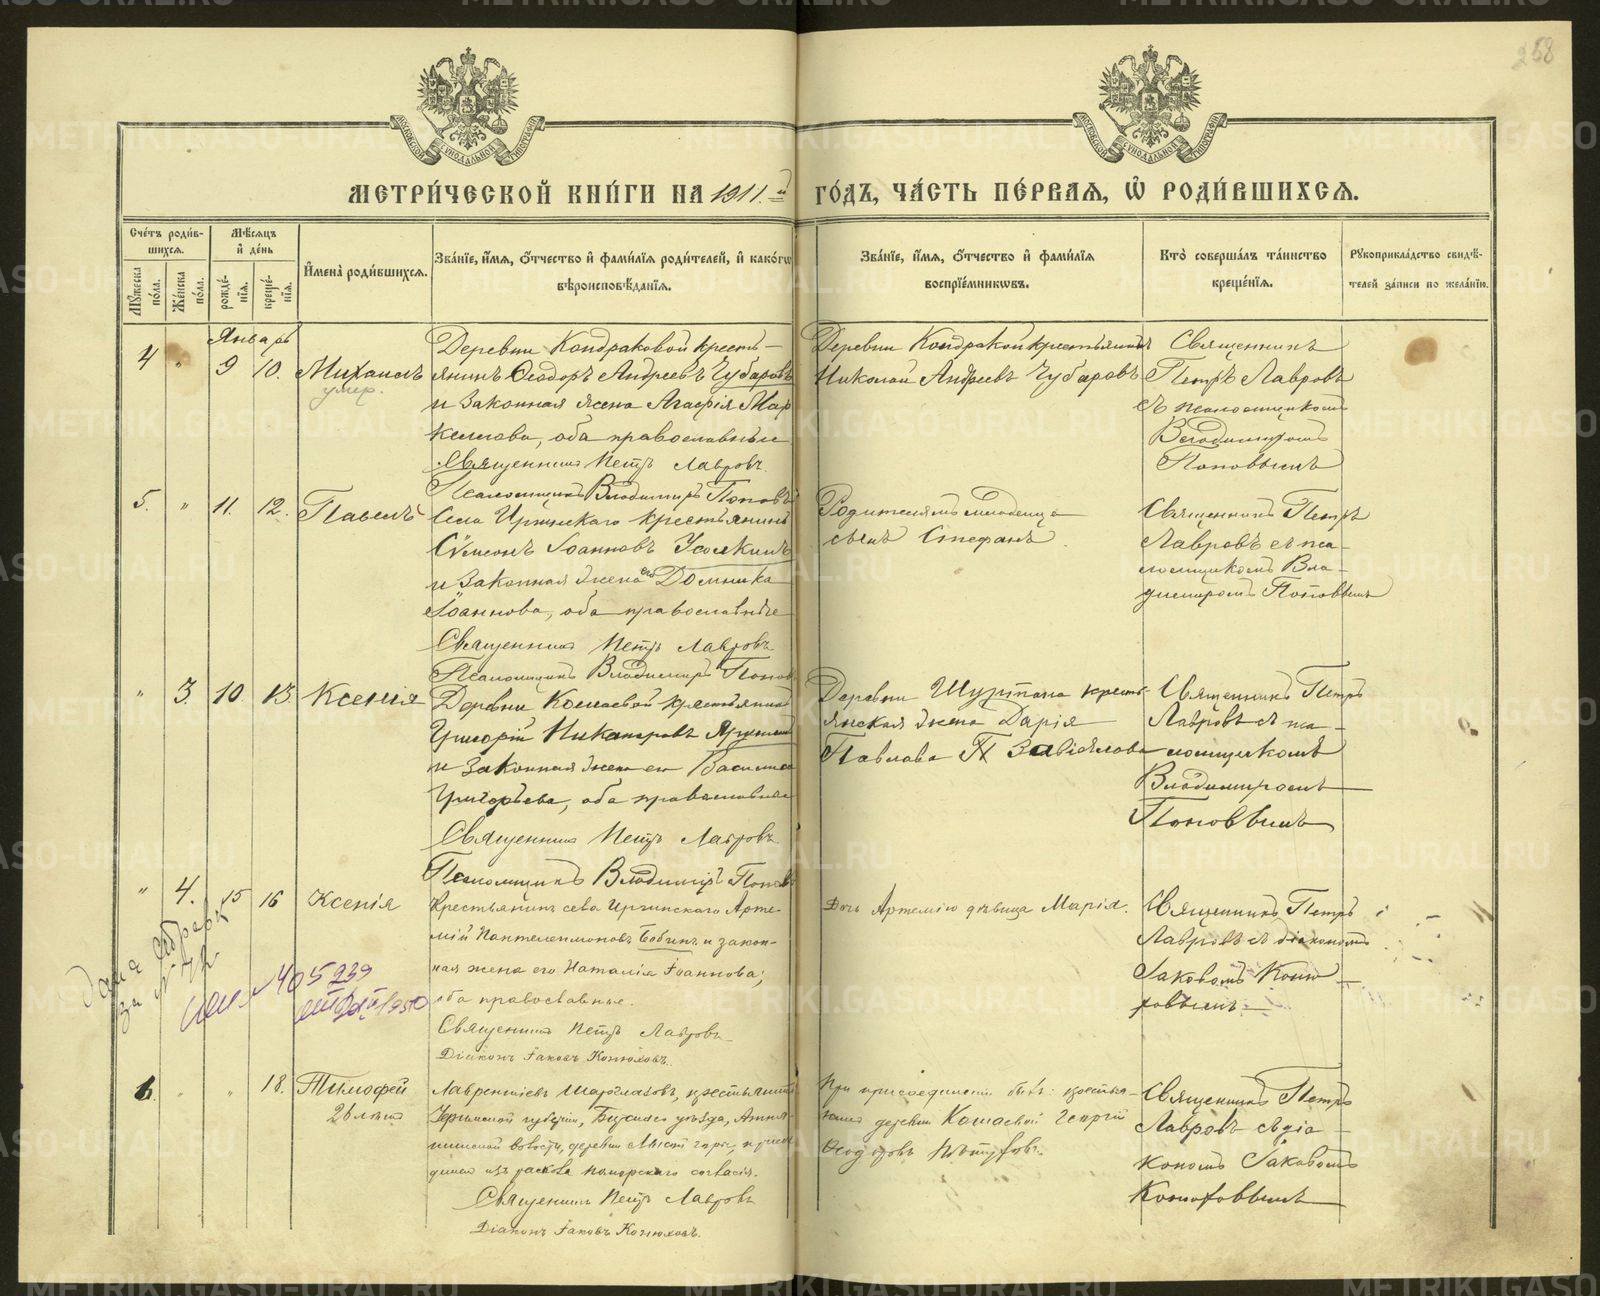 258
МОСКОВСКОЙ СѴНОДАЛЬНОЙ ТИПОГРАФІИ
МОСКОВСКОЙ СѴНОДАЛЬНОЙ ТИПОГРАФІИ
МЕТРИ́ЧЕСКОЙ КНИ́ГИ НА 1911.й ГО́ДЪ, ЧА́СТЬ ПЕ́РВАЯ, Ѡ҆ РОДИ́ВШИХСЯ.
Сче́тъ роди́в-
шихся.
Мѣ́сяцъ
и҆ де́нь
Мꙋ́жеска
по́ла.
Же́нска
по́ла.
рожде́-
нїя.
креще́-
нїя.
И҆мена̀ роди́вшихся.
Зва́нїе, и҆́мя, ѻ҆́тчество и҆ фами́лїя роди́телей, и҆ како́гѡ
вѣроисповѣ́данїя.
Зва́нїе, и҆́мя, ѻ҆́тчество и҆ фами́лїя
воспрїе́мникѡвъ.
Кто̀ соверша́лъ та́инство
креще́нїя.
Рꙋкоприкла́дство свидѣ́-
телей за́писи по жела́нїю.
Январь
4 " 9 10. Михаилъ
умер.
Деревни Кондраковой кресть-
янинъ Ѳеодоръ Андреевъ Чубаровъ
и законная жена Агафія Мар
келлова, оба православные
Священникъ Петръ Лавровъ.
Псаломщикъ Владимиръ Поповъ
Деревни Кондракой крестьянинъ
Николай Андреевъ Чубаровъ
Священникъ
Петръ Лавровъ
съ псаломщикомъ
Владимиромъ
Поповымъ
5. " 11. 12. Павелъ
Села Иргинскаго крестьянинъ
Сѵмеонъ Іоанновъ Усолкинъ
и законная жена его Домника
Іоаннова, оба православные
Священникъ Петръ Лавровъ
Псаломщикъ Владимиръ Попов
Родителямъ младенца
сынъ Стефанъ.
Священникъ Петръ
Лавровъ съ пса-
ломщикомъ Вла-
димиромъ Поповымъ
" 3. 10. 13. Ксенія
Деревни Кошаевой крестьянинъ
Григорій Никаноровъ
и законная жена его Василиса
Григорьева, оба православные
Священникъ Петръ Лавровъ
Псаломщикъ Владимиръ Поповъ
Деревни Шуртана кресть-
янская жена Дарія
Павлова Завіялова
Священникъ Петръ
Лавровъ съ пса-
ломщикомъ
Владимиромъ
Поповымъ
" 4. 15 16 Ксенія
Крестьянинъ села Иргинскаго Арте-
мій Пантелеимоновъ Бабинъ и закон-
ная жена его Наталія Іоаннова;
оба православные.
Священникъ Петръ Лавровъ
Діаконъ Іаковъ Конюховъ.
Дочь Артемію дѣвица Марія.
Священникъ Петръ
Лавровъ съ діакономъ
Іаковомъ Коню
ховымъ.
405239
1950
6. " " 18. Тимофей
26 лѣтъ
Лаврентіевъ крестьянинъ
Уфимской губерніи, Бирскаго уѣзда,
волости, деревни
изъ раскола поморскаго согласія.
Священникъ Петръ Лавровъ
Діаконъ Іаковъ Конюховъ.
При присоединеніи былъ: крестья-
нинъ деревни Кошаевой Георгій
Ѳеодоровъ
Священникъ Петръ
Лавровъ съ діа-
кономъ Іаковомъ
Конюховымъ
METRIKI.GASO-URAL.RU